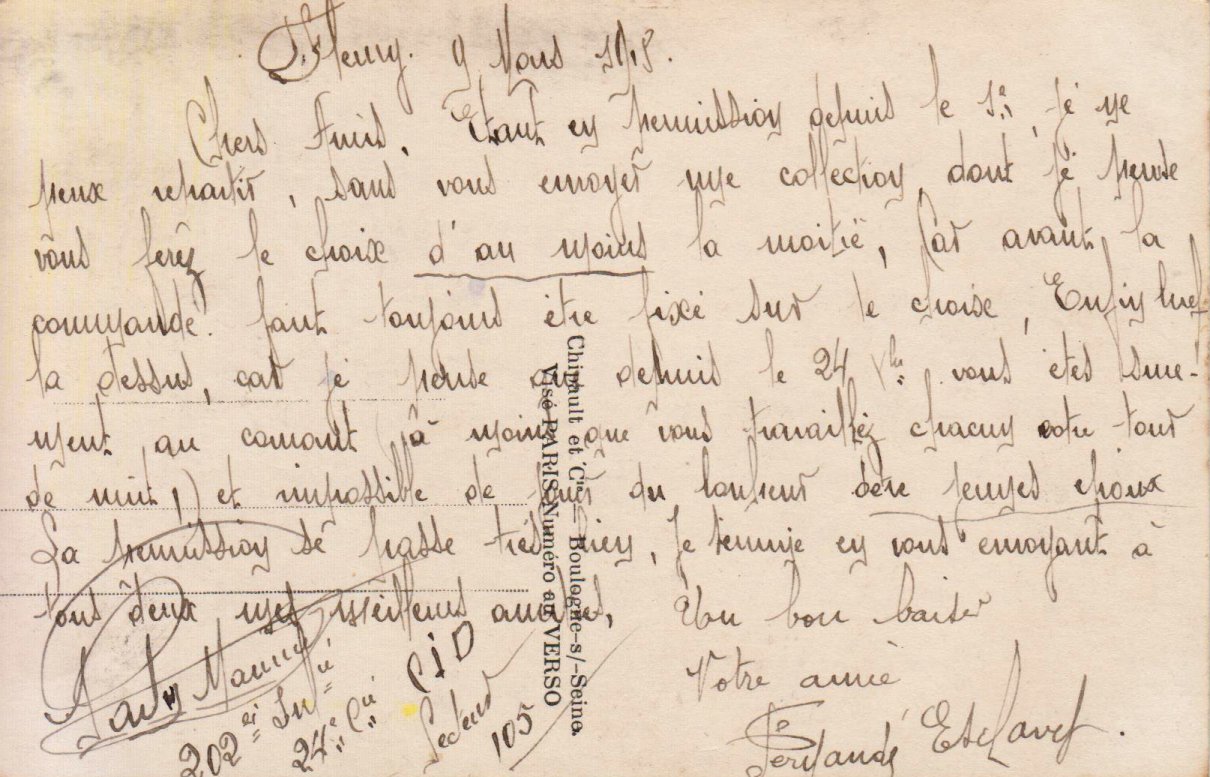 Fleury. 9 Mars 1918.
Chers Amis, Etant en permission depuis le 1er, je ne
peux repartir, sans vous envoyer une collection, dont je pense
vous ferez le choix d'au moins la moitié, Car avant la
commande. faut toujours être fixé sur le choix, Enfin bref
la dessus, car je pense que depuis le 24 vous êtes
au courant à moins que vous travaillez chacun votre tour
de nuit,) et impossible de du bonheur de jeunes époux
La permission se passe très bien, Je termine en vous envoyant à
tous deux mes meilleurs amitiés, Un bon baiser
Votre amie
Fernande Esclavet.
202ei Infie
24e Cie
CID
Secteur
105
Chipault et Cie — Boulogne-s/-Seine.
Visé PARIS Numéro au VERSO